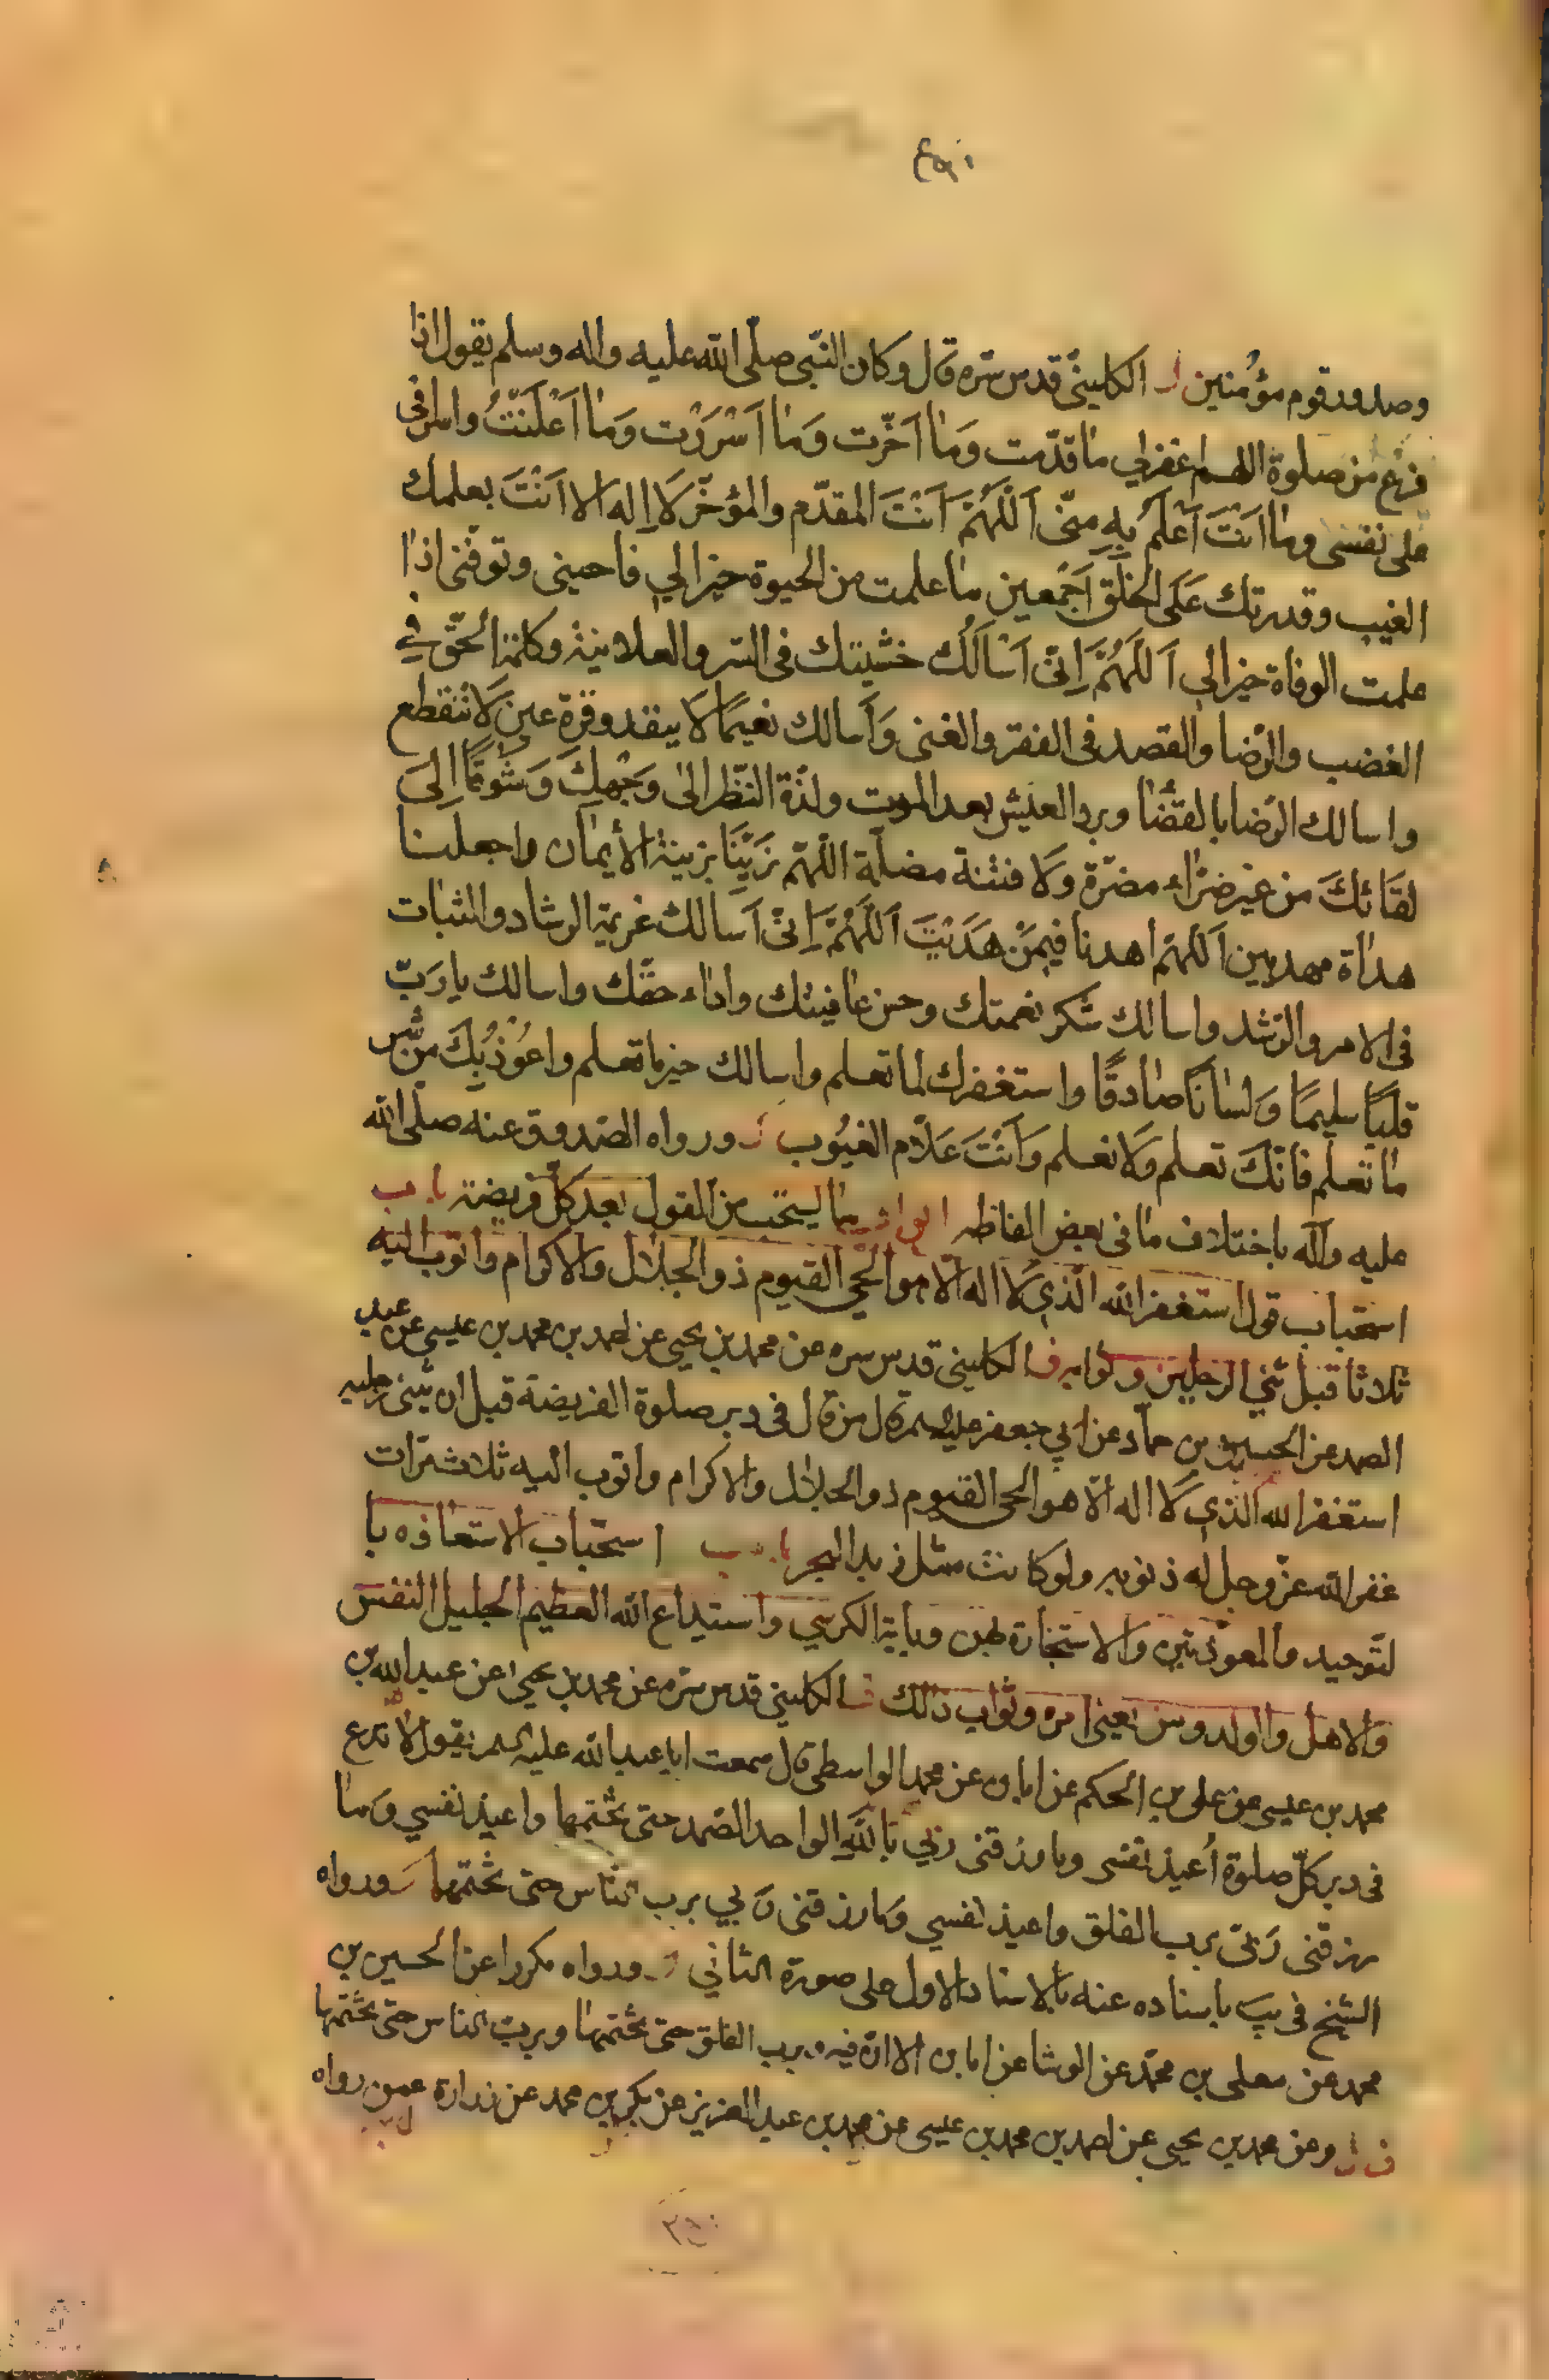 وصدور قوم مؤمنين الكلينيّ قدس سّره قال وكان النّبى صلّى الله عليه واله وسلم يقول اذا
فرغ من صلوة اللهم اغفرلي ما قدّمت وَما اَخّرت وَما اَسْرَرْت وَما اَعْلَنْتُ واسرافى
على نفسى وما اَنْتَ اَعْلَمُ بِهِ مِنّى اَللّهُمَّ اَنْتَ المقدّم والمؤخّر لَا اِله الا اَنْتَ بعلمك
الغيب وقدرتك عَلَى الخَلْقِ اَجْمعين ما علمت من الحيوة خيرا لي فاحينى وتوفّنى اذا
علمت الوفاة خيرا لي اَللّهُمَّ اِنّى اَسْاَلُك خشيتك فى السّر والعلانية وكلمة الحّق في
الغضب والرّضا والقصد فى الفقر والغنى وَاَسالك نعيمًا لَا ينفد وقرة عين لَا تنقطع
واسالك الرّضا بالقضا وبرد العيش بعد الموت ولذّة النّظر الى وَجْهِكَ وَشَوقًا اِلىَ
لقَائكَ من غير ضرّاء مضرّة وَلا فتنة مضلّة اللّهمّ زَيِّنَا بزينة الأيمان واجعلنا
هداة مهديين اَللّهمّ اهدنا فيمَنْ هَدَيْتَ اَللّهُمَّ اِنّى اَسالك عزيمة الرشاد والثبات
فى الامر والرّشد واسالك شكر نعمتك وحسن عافيتك واداء حقّك واسالك يا رَبّ
قلبًا سليمًا وَلسانًا صادقًا واستغفرك لما تعلم واسالك خير ما تعلم واعُوْذُبِكَ من شّر
ما تعلم فانّكَ تعلم وَلَا نعلم وَاَنْتَ عَلّام الغيُوب ورواه الصّدوق عنه صلّى الله
عليه وآله باختلاف ما فى بعض الفاظه ابواب ما يستحّب من القول بعد كلّ فريضة باب
استحباب قول استغفر الله الّذي لَا اله الّا هو الحّي القيوم ذو الجلال والاكرام واتوب اليه
ثلاثا قبل ثني الرجلين وثوابه ف الكليني قدس سره عن محمد بن يحيى عن احمد بن محمد بن عيسى عن عبد
الصمد عن الحسين بن حمّاد عن ابي جعفر عليه السلم قال من قال فى دبر صلوة الفريضة قبل ان يثنى رجليه
استغفر الله الذي لَا اله الّا هو الحى القيوم ذو الجلال والاكرام واتوب اليه ثلاث مّرات
غفر الله عزّ وجل له ذنوبه ولو كانت مثل زبد البحر باب استحّباب الاستعاذه با
لتّوحيد والمعوّذتين والاستجارة بهن وباية الكرسي واستيداع الله العظيم الجليل النفس
والاهل والولد ومن يعنى امره وثواب ذلك ف الكليني قدس سّره عن محمد بن يحيى عن عبد الله بن
محمد بن عيسى عن على بن الحكم عن ابان عن محمد الواسطى قال سمعت ابا عبد الله عليه السلم يقول لا تدع
فى دبر كلّ صلوة اُعيذ نفسى وما رزقنى ربّي باللَّهِ الواحد الصّمد حتى تختمها واعيذ نفسي وَما
رزقنى رَبّى برب الفلق واعيذ نفسي وَما رزقنى رَبي برب النّاس حتى تختمها ورواه
الشيخ فى يب باسناده عنه بالاسناد الاول على صورة الثاني ورواه مكررا عن الحسين بن
محمد عن معلى بن محمّد عن الوشا عن ابان الا انّ فيه وبرب الفلق حتى تختمها وبربّ الناس حتى تختمها
ف وعن محمد بن يحيى عن احمد بن محمد بن عيسى عن محمد بن عبد العزيز عن بكر بن محمد عن زرارة عمن رواه